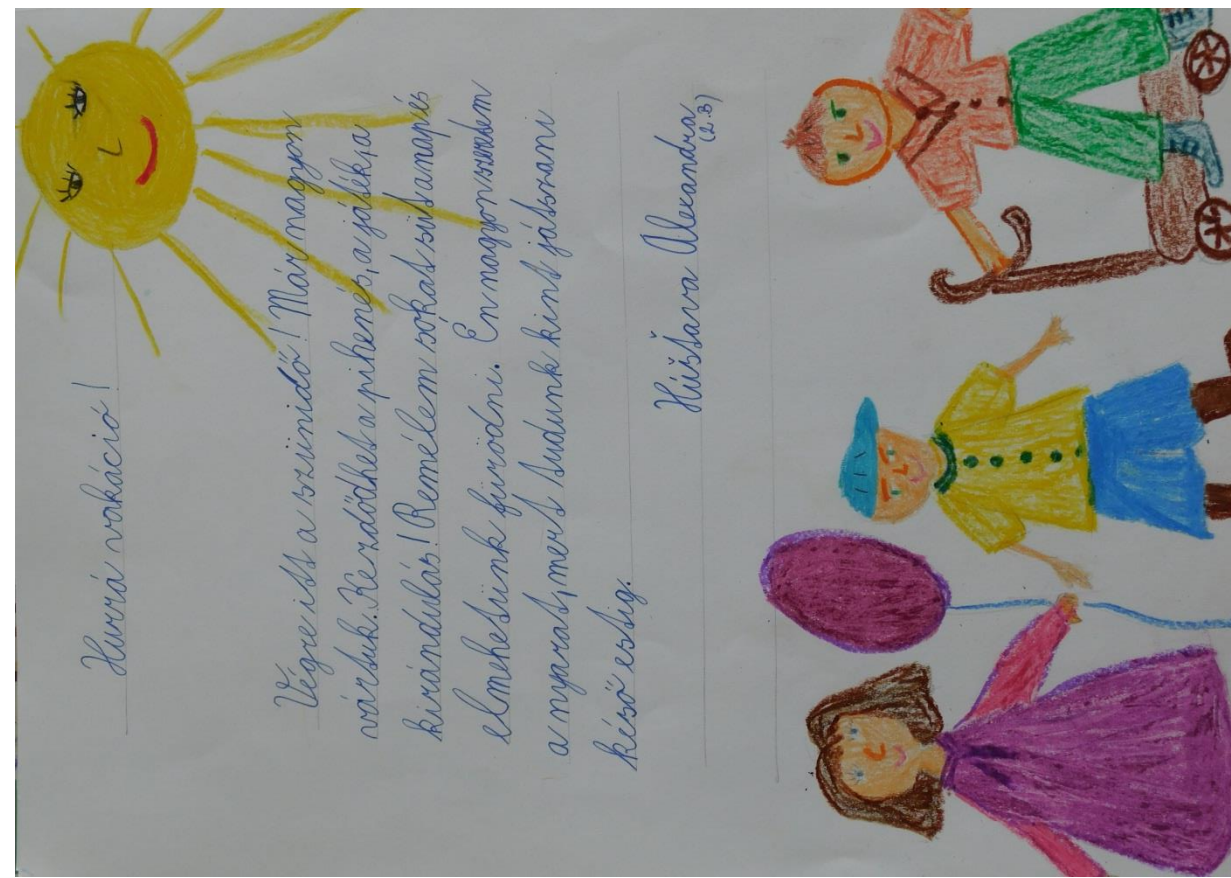 Hurrá vakáció!
Végre itt a szünidő! Már nagyon
vártuk. Kezdődhet a pihenés, a játék, a
kirándulás! Remélem sokat süt a nap és
elmehetünk fürödni. Én nagyon szeretem
a nyarat, mert tudunk kint játszani
késő estig.
Húšťava Alexandra
(2.B)